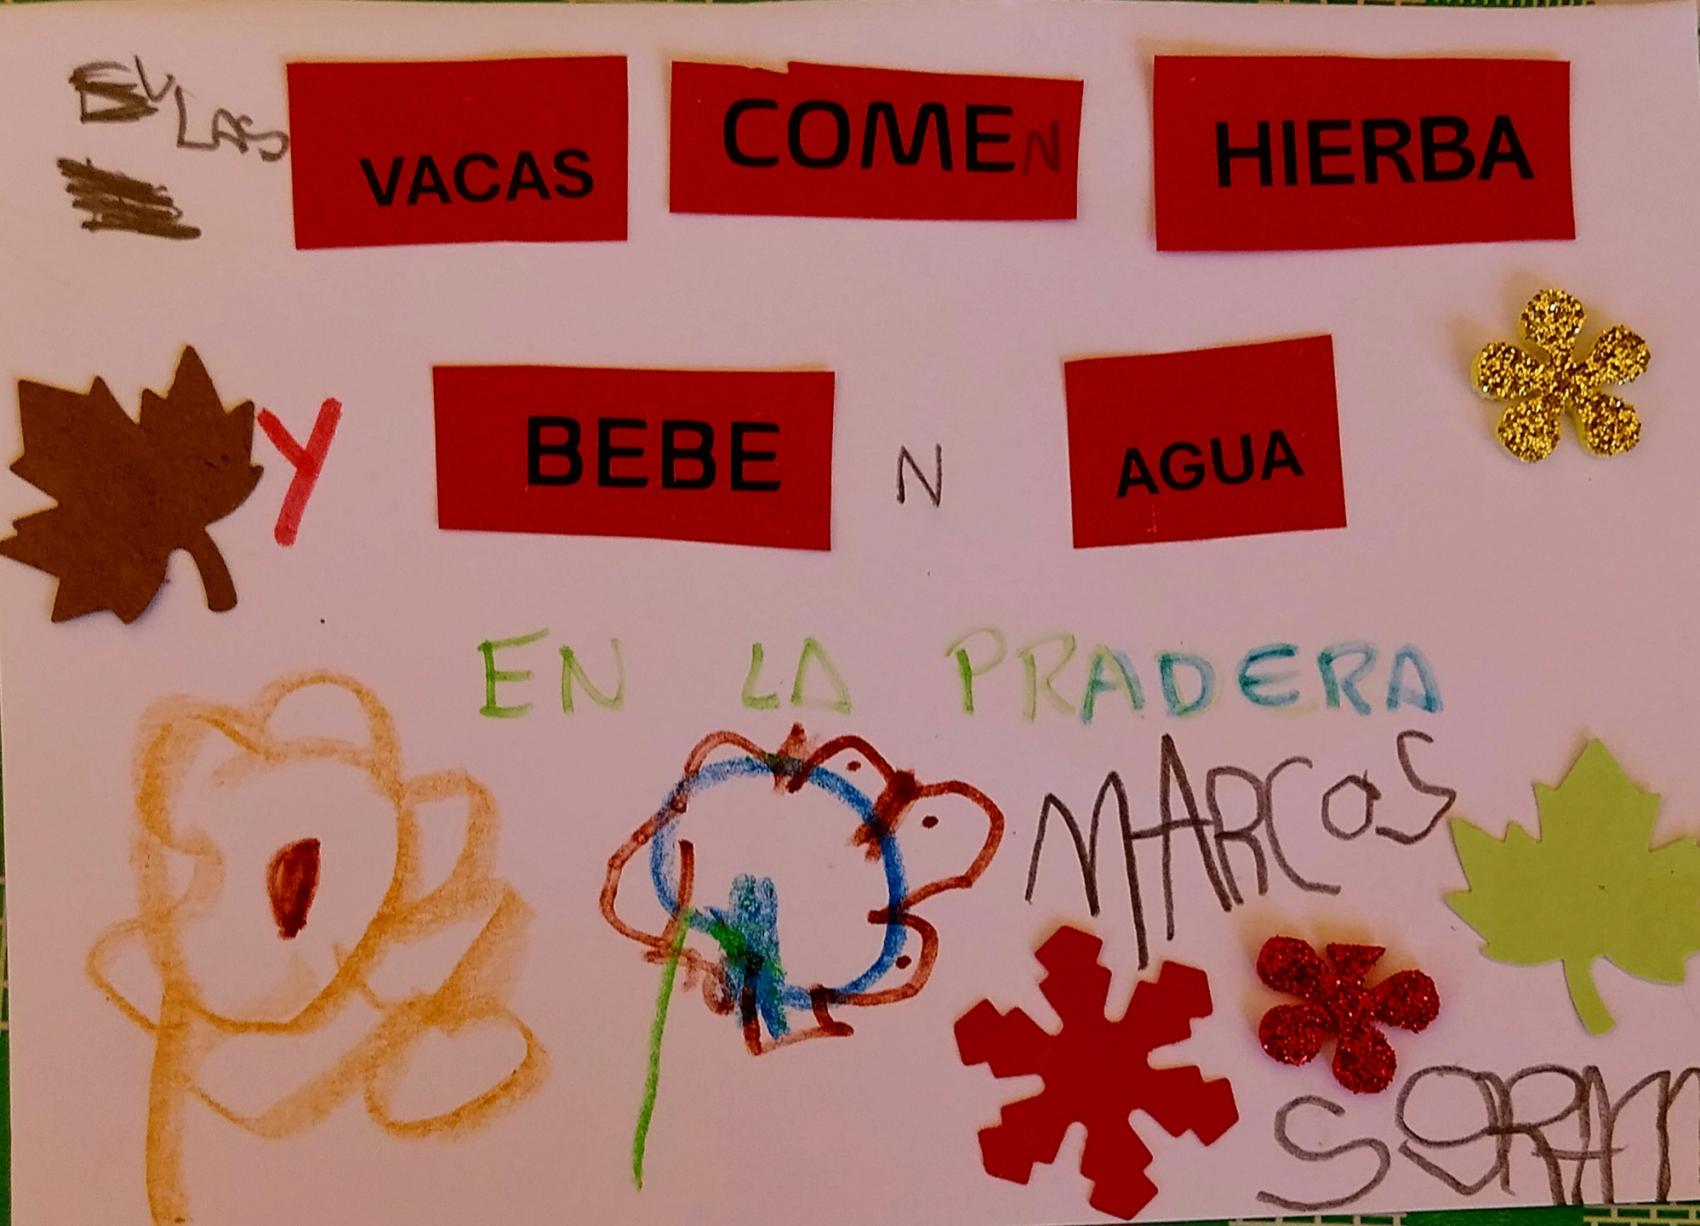 LAS VACAS COMEN HIERBA
Y BEBE N AGUA
EN LA PRADERA
MARCOS